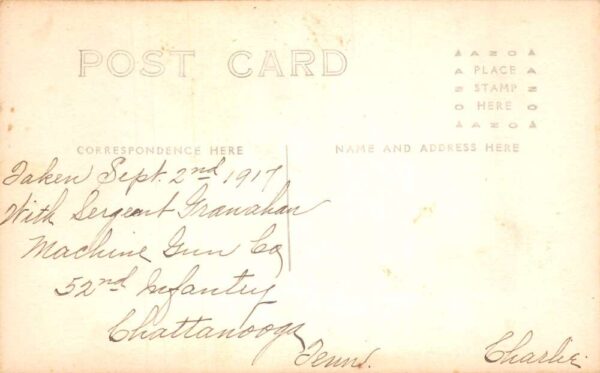 POST CARD
AZO
PLACE
STAMP
HERE
AZO
CORRESPONDENCE HERE
NAME AND ADDRESS HERE
Taken Sept. 2nd 1917
With Sergeant Granahan
Machine Gun Co
52nd Infantry
Chattanooga
Tenns.
Charlie